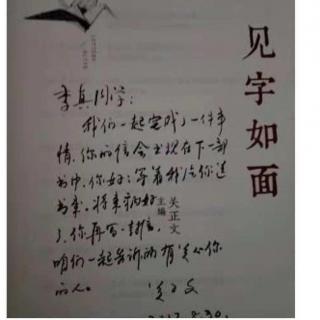 见字如面
关正文
主编
李真同学：
我们一起完成了一件事
情，你的信会出现在下一部
书中，你好好等着我给你送
书来，将来病好
了，你再写一封信，
咱们一起告诉所有关心你
的人。
关正文
2017.8.30.